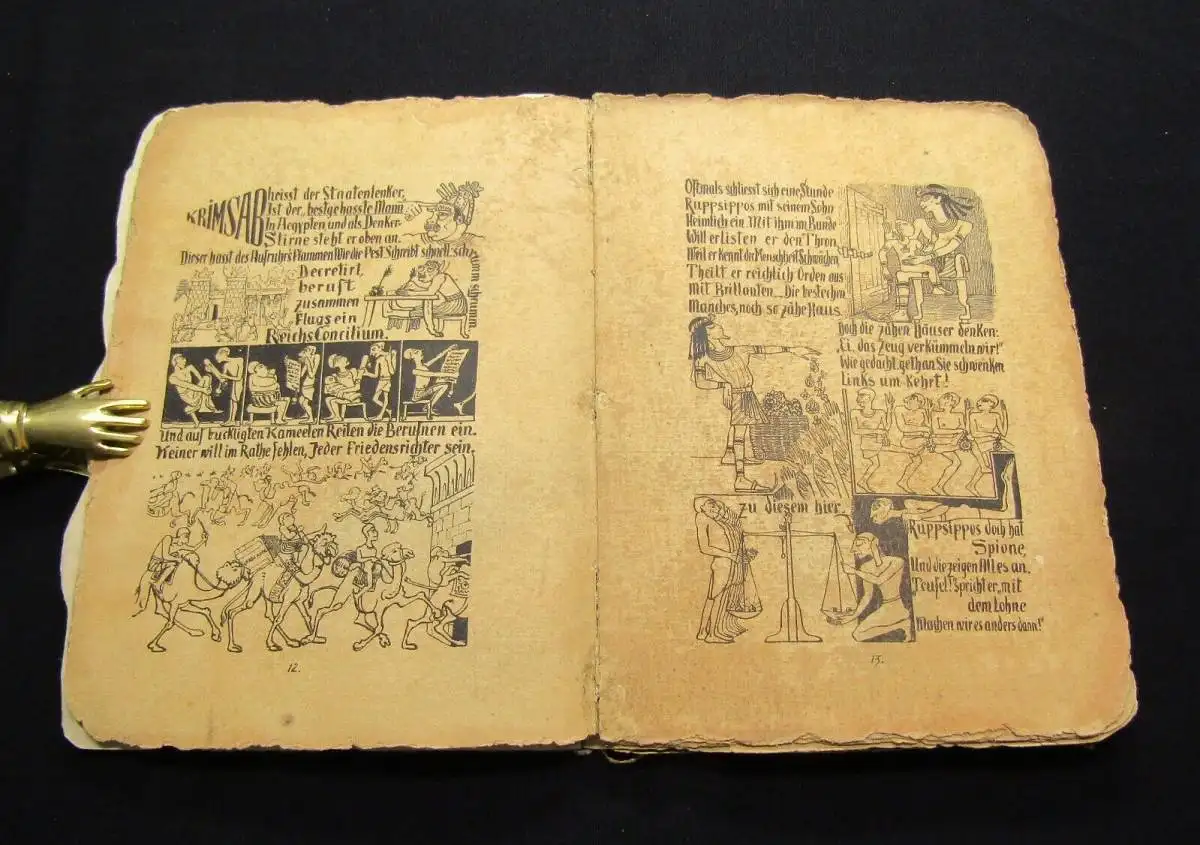 KRIMSAB heisst der Staatenlenker,
Ist der „bestgehasste Mann
In Aegypten und als Denker-
Stirne steht er oben an.
Dieser hasst des Aufruhrs Flammen Wie die Pest Schreibt schnell: schrumm schrumm
Decretirt,
beruft
zusammen
Flugs ein
Reichs Concilium.
Und auf buckligten Kameelen Reiten die Berufnen ein.
Keiner will im Rathe fehlen, Jeder Friedensrichter sein.
12.
Oftmals schliesst sich eine Stunde
Ruppsippos mit seinem Sohn
Heimlich ein. Mit ihm im Bunde
Will erListen er den Thron.
Weil er kennt der Menschheit Schwächen,
Theilt er reichlich Orden aus
Mit Brillanten... Die bestechen
Manches, noch so zähe Haus
Doch die zähen Häuser denken:
„Ei, das Zeug verkümmeln wir!"
Wie gedacht, gethan Sie schwenken
Links um Kehrt!
zu diesem hier.
Ruppsippos doch hat
Spione,
Und die zeigen Alles an.
„Teufel!" spricht er, „mit
dem Lohne
Machen wir es anders dann!"
13.